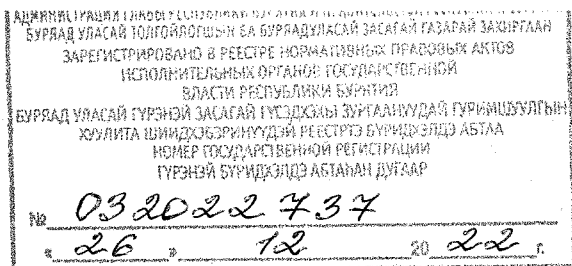 АДМИНИСТРАЦИЯ ГЛАВЫ РЕСПУБЛИКИ БУРЯТИЯ И ПРАВИТЕЛЬСТВА
БУРЯАД УЛАСАЙ ТОЛГОЙЛОГШЫН БА БУРЯАД УЛАСАЙ ЗАСАГАЙ ГАЗАРАЙ ЗАХИРГААН
ЗАРЕГИСТРИРОВАНО В РЕЕСТРЕ НОРМАТИВНЫХ ПРАВОВЫХ АКТОВ
ИСПОЛНИТЕЛЬНЫХ ОРГАНОВ ГОСУДАРСТВЕННОЙ
ВЛАСТИ РЕСПУБЛИКИ БУРЯТИЯ
БУРЯАД УЛАСАЙ ГҮРЭНЭЙ ЗАСАГАЙ ГҮЙСЭДХЭХЫ ЗУРГААНУУДАЙ ГУРИМШУУЛГЫН
ХУУЛИТА ШИИДХЭБЭРИНҮҮДЭЙ РЕЕСТРТЭ БҮРИДХЭЛДЭ АБТАА
НОМЕР ГОСУДАРСТВЕННОЙ РЕГИСТРАЦИИ
ГҮРЭНЭЙ БҮРИДХЭЛДЭ АБТАҺАН ДУГААР
№ 032022737
« 26 » 12 20 22 г.